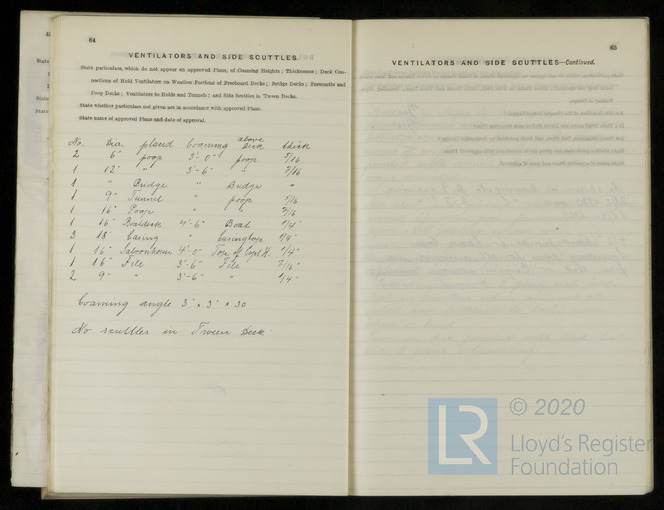 64
VENTILATORS AND SIDE SCUTTLES.
State particulars, which do not appear on approved Plans, of Coaming Heights; Thicknesses; Deck Con-
nections of Hold Ventilators on Weather Portions of Freeboard Decks; Bridge Decks; Forecastle and
Poop Decks; Ventilators to Holds and Tunnels; and Side Scuttles in 'Tween Decks.
State whether particulars not given are in accordance with approved Plans.
State name of approved Plans and date of approval.
No. Dia. placed Coaming above Deck thick
2 6" poop 3'-0" poop 5/16
1 12" " 3'-6" " 7/16
1 " Bridge " Bridge "
1 9" Tunnel " poop
1 16" Poop "
1 16" Boatdeck 4'-6" Boat 1/4"
3 18" Casing " Casingtop 1/4"
1 16" 4'-0" Top of 1/4"
1 3'-6"
2 9" " 3'-6" " 1/4"
Coaming angle 3" x 3" x 30
No scuttles in Tween Deck
65
VENTILATORS AND SIDE SCUTTLES—Continued.
LR
© 2020
Lloyd's Register
Foundation